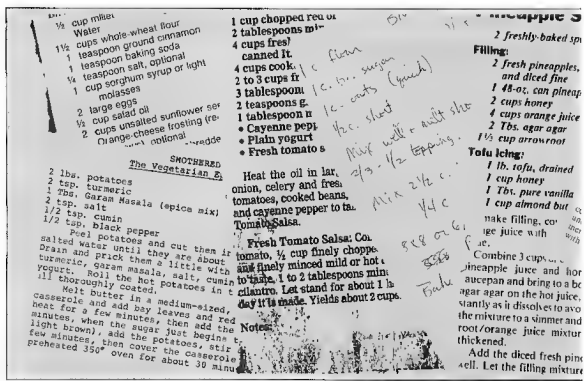 ½ cup millet
Water
1½ cups whole-wheat flour
1 teaspoon ground cinnamon
1 teaspoon baking soda
¼ teaspoon salt, optional
1 cup sorghum syrup or light
molasses
2 large eggs
½ cup salad oil
2 cups unsalted sunflower see
Orange-cheese frosting (re-
optional
SMOTHERED
The Vegetarian E
2 lbs. potatoes
2 tsp. turmeric
1 Tbs. Garam Masala (epice mix)
2 tsp. salt
1/2 tsp. cumin
1/2 tsp. black pepper
Peel potatoes and cut them in
salted water until they are about
Drain and prick them a little with
turmeric, garam masala, salt, cumin
yogurt. Roll the hot potatoes in t
ill thoroughly coated.
Melt butter in a medium-sized,
casserole and add bay leaves and red
heat for a few minutes, then add the
minutes, when the sugar just begins t
light brown), add the potatoes, stir
few minutes, then cover the casserole
preheated 350° oven for about 30 minu
1 cup chopped red or
2 tablespoons mi
4 cups fres
canned It.
4 cups cook
2 to 3 cups fr
3 tablespoon
2 teaspoons g
1 tablespoon n
• Cayenne pepp
• Plain yogurt
• Fresh tomato s
Heat the oil in lar
onion, celery and fres
tomatoes, cooked beans,
and cayenne pepper to ta
Tomato Salsa.
Fresh Tomato Salsa: Co
tomato, ½ cup finely choppe
and finely minced mild or hot
to taste, 1 to 2 tablespoons min
cilantro. Let stand for about 1 h
day it is made. Yields about 2 cups.
Notes:
1 c flour
1 c. sugar
1 c. oats (quick)
½ c. short
Mix well & melt sho
2/3 - 1/2 topping.
Mix 2½ c.
1/4 c
8x8 or 6,
Pineapple S
2 freshly-baked sp
Filling:
2 fresh pineapples,
and diced fine
1 48-oz. can pineap
2 cups honey
4 cups orange juice
2 Tbs. agar agar
1½ cup arrowroot
Tofu Icing:
1 lb. tofu, drained
1 cup honey
1 Tbs. pure vanilla
1 cup almond but
make filling, co
ge juice with
Combine 3 cups
pineapple juice and hon
saucepan and bring to a bo
agar agar on the hot juice,
stantly as it dissolves to avo
the mixture to a simmer and
root/orange juice mixtur
thickened.
Add the diced fresh pine
well. Let the filling mixture